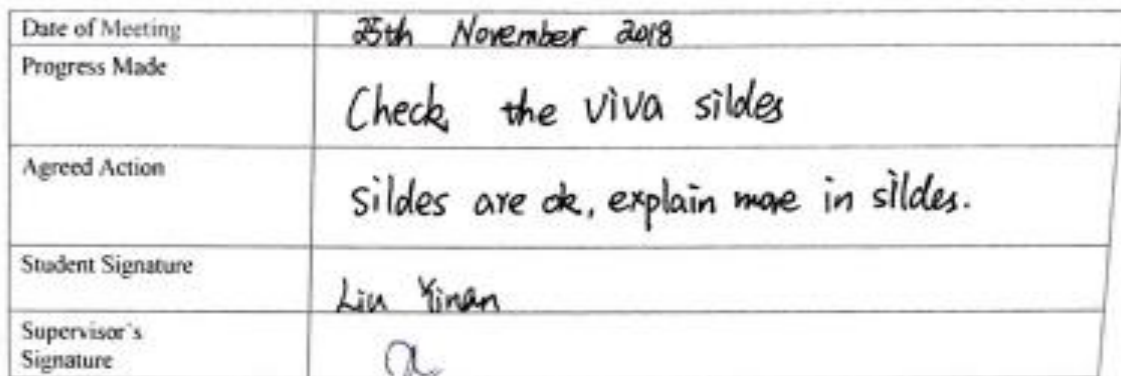 Date of Meeting 25th November 2018
Progress Made
Check the viva sildes
Agreed Action
sildes are ok, explain more in sildes.
Student Signature
Liu Yinan
Supervisor's
Signature